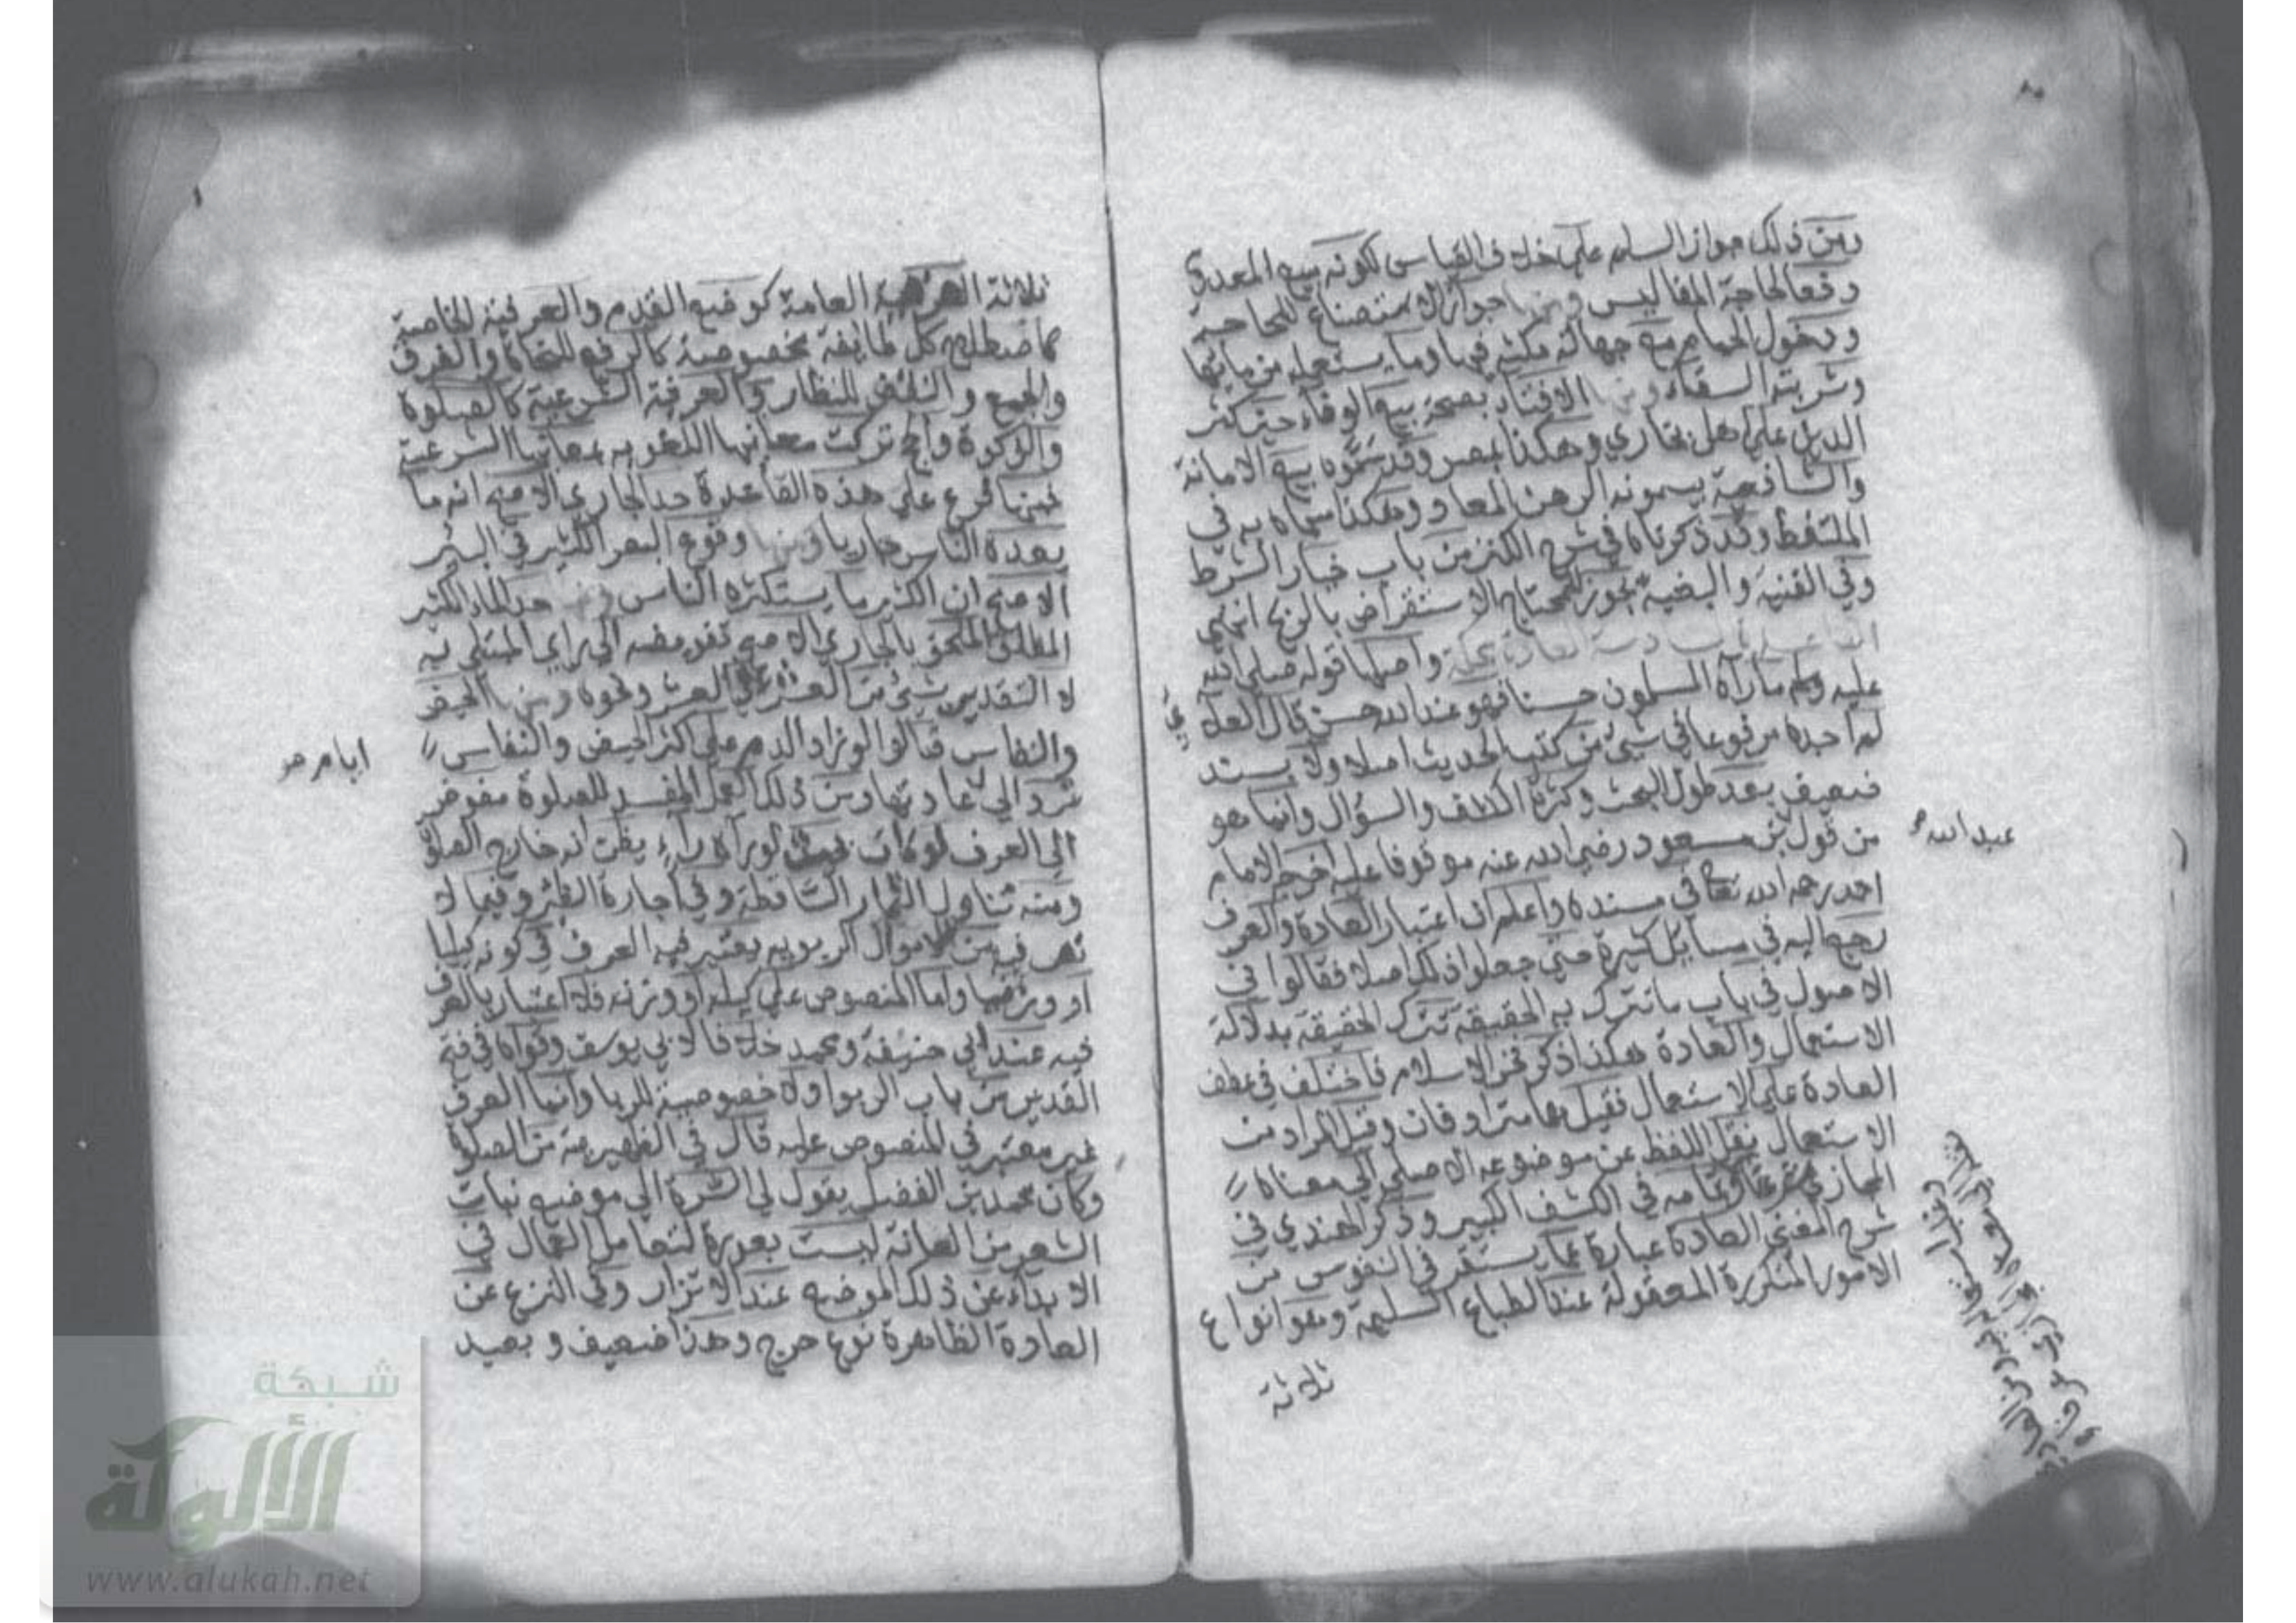 ومن ذلك جواز السلم على خلاف القياس لكونه بيع المعدوم
دفعا لحاجة المفاليس ومنها جواز الاستصناع للحاجة
ودخول الحمام مع جهالة مكثه فيها وما يستعمله من مائها
وشربة السقاء ومنها الافتاء بصحة بيع الوفاء حين كثر
الدين على اهل بخارى وهكذا بمصر وقد سموه بيع الامانة
والشافعية يسمونه الرهن المعاد وهكذا سماه به في
الملتقط وقد ذكرناه في شرح الكنز من باب خيار الشرط
وفي القنية والبغية يجوز للمحتاج الاستقراض بالربح انتهى
القاعدة السادسة العادة محكمة واصلها قوله صلى الله
عليه وسلم ما رآه المسلمون حسنا فهو عند الله حسن قال العلائي
لم اجده مرفوعا في شيء من كتب الحديث اصلا ولا بسند
ضعيف بعد طول البحث وكثرة الكشف والسؤال وانما هو
من قول بن مسعود رضي الله عنه موقوفا عليه اخرجه الامام
عبد الله
احمد رحمه الله تعالى في مسنده واعلم ان اعتبار العادة والعرف
رجع اليه في مسايل كثيرة حتى جعلوا ذلك اصلا فقالوا في
الاصول في باب ما تترك به الحقيقة تترك الحقيقة بدلالة
الاستعمال والعادة هكذا ذكر فخر الاسلام فاختلف في عطف
العادة على الاستعمال فقيل هما مترادفان وقيل المراد من
الاستعمال نقل اللفظ عن موضوعه الاصلي الى معناه
المجازي شرعا وتمامه في الكشف الكبير وذكر الهندي في
شرح المغني العادة عبارة عما يستقر في النفوس من
الامور المتكررة المعقولة عند الطباع السليمة وهو انواع
ثلاثة
ثلاثة العرفية العامة كوضع القدم والعرفية الخاصة
كاصطلاح كل طايفة مخصوصة كالرفع للنحاة والفرق
والجمع والنقض للنظار والعرفية الشرعية كالصلوة
والزكوة والحج تركت معانيها اللغويه بمعانيها الشرعية
فمما فرع على هذه القاعدة حد الجاري الاصح انه ما
يعده الناس جاريا ومنها وقوع البعر الكثير في البئر
الاصح ان الكثير ما يستكثره الناس ومنها حد الماء الكثير
المطلق الملحق بالجاري الاصح تفويضه الى راي المبتلى به
لا التقدير بشيء من العشر في العشر ونحوه ومنها الحيض
والنفاس قالوا لو زاد الدم على اكثر الحيض والنفاس
ايام
ترد الى عادتها ومن ذلك العمل المفسد للصلوة مفوض
الى العرف لو كان بحيث لو رآه راء يظن انه خارج الصلوة
ومنه تناول الثمار الساقطة وفي اجارة الظئر وفيما لا
نص فيه من الاموال الربويه يعتبر فيه العرف في كونه كيليا
او وزنيا واما المنصوص على كيله او وزنه فلا اعتبار بالعرف
فيه عند ابي حنيفة ومحمد خلافا لابي يوسف وقواه في فتح
القدير من باب الربوا ولا خصوصية للربا وانما العرف
غير معتبر في المنصوص عليه قال في الظهيرية من الصلوة
وكان محمد بن الفضل يقول لي السرة الى موضع نبات
الشعر من العانة ليست بعورة لتعامل العمال في
الابداء عن ذلك الموضع عند الاتزار وفي النزع عن
العادة الظاهرة نوع حرج وهذا ضعيف وبعيد
شبكة
الألوكة
www.alukah.net